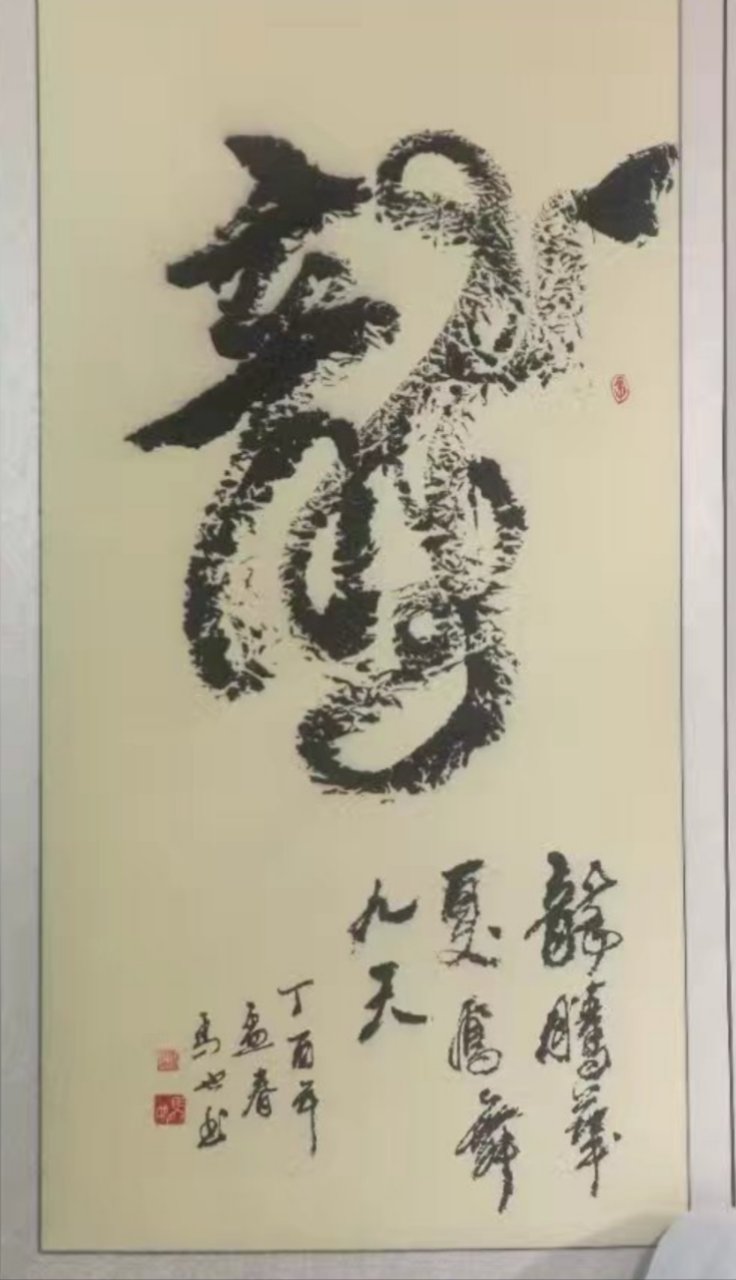 龍
龍騰華
夏鳳舞
九天
丁酉年
孟春
馬也書